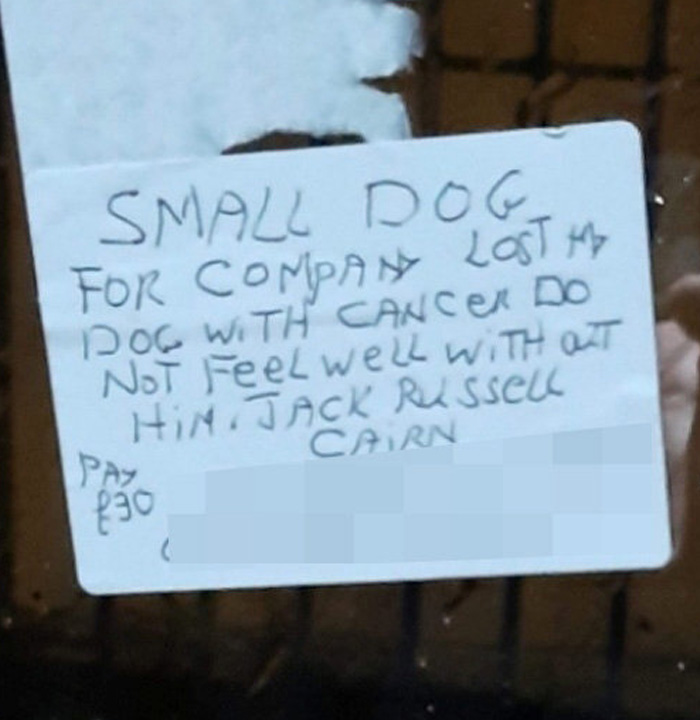 SMALL DOG
FOR COMPANY LOST My
DOG WiTH CANCER DO
NOT FEEL WELL WiTHOUT
HiM. JACK RUSSELL
CAiRN
PAy
£30